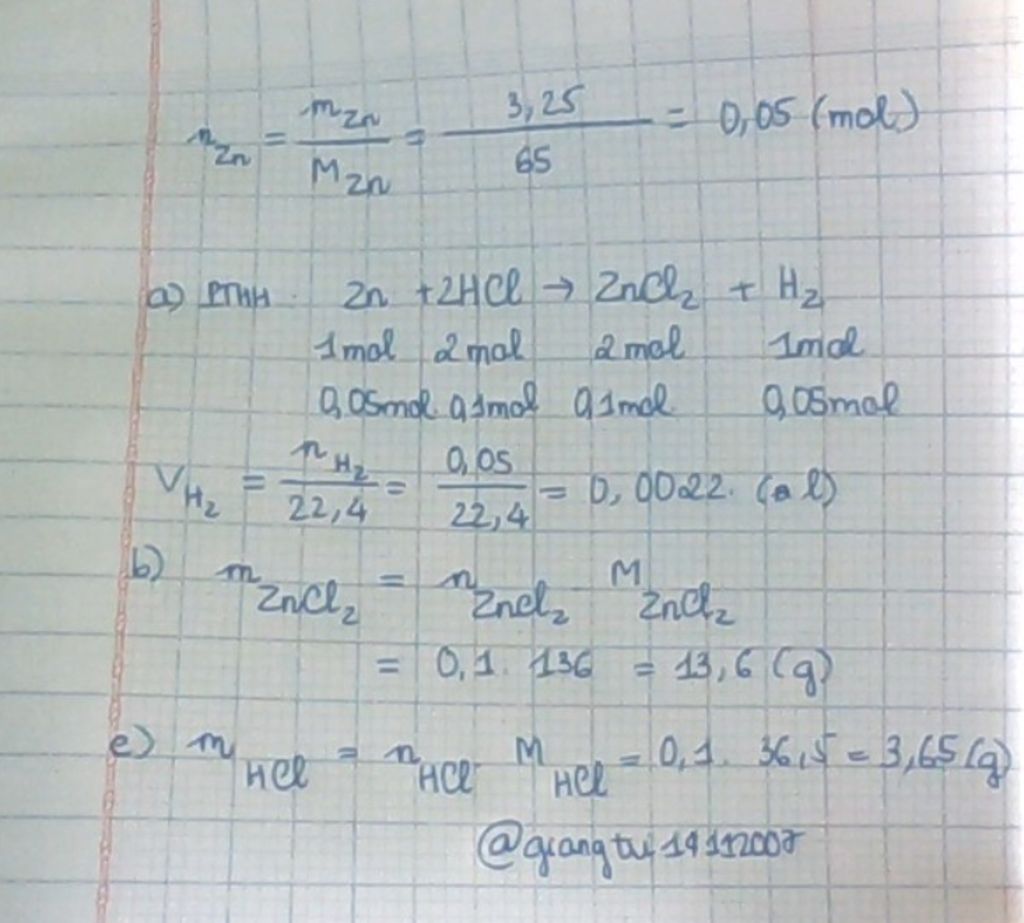 n_Zn = m_Zn / M_Zn = 3,25 / 65 = 0,05 (mol)
a) PTHH. Zn + 2HCl → ZnCl₂ + H₂
1mol 2mol 2mol 1mol
0,05mol 0,1mol 0,1mol 0,05mol
V_H₂ = n_H₂ / 22,4 = 0,05 / 22,4 = 0,0022. (l)
b) m_ZnCl₂ = n_ZnCl₂ M_ZnCl₂
= 0,1. 136 = 13,6 (g)
c) m_HCl = n_HCl. M_HCl = 0,1. 36,5 = 3,65 (g)